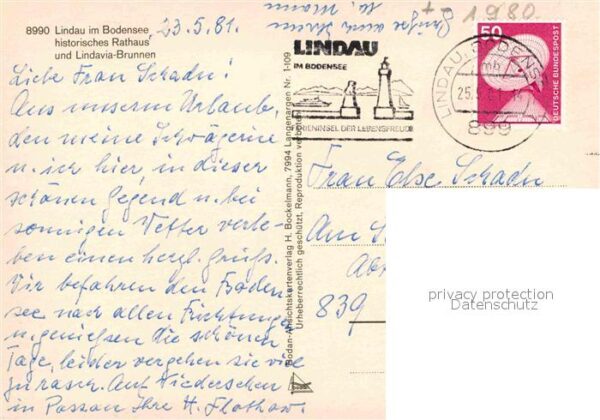 8990 Lindau im Bodensee
historisches Rathaus
und Lindavia-Brunnen
23.5.81.
Liebe Frau Schadn!
Aus unserem Urlaub,
den meine Schwägerin
u. ich hier, in dieser
schönen Gegend u. bei
sonnigen Wetter verle-
ben einen herzl. Gruß.
Wir befahren den Boden-
see nach allen Richtungen
u. genießen die schönen
Tage, leider vergehen sie viel
zu rasch. Auf Wiedersehen
in Passau Ihre H. Flothow.
Grüße auch Ihrem
1980
Bodan-Ansichtskartenverlag H. Bockelmann, 7994 Langenargen Nr. 1-H09
Urheberrechtlich geschützt, Reproduktion verboten
LINDAU
IM BODENSEE
FERIENINSEL DER LEBENSFREUDE
LINDAU, BODENSEE
mb
25.5.81
899
50
DEUTSCHE BUNDESPOST
Frau Else Schadn
Am
839
privacy protection
Datenschutz